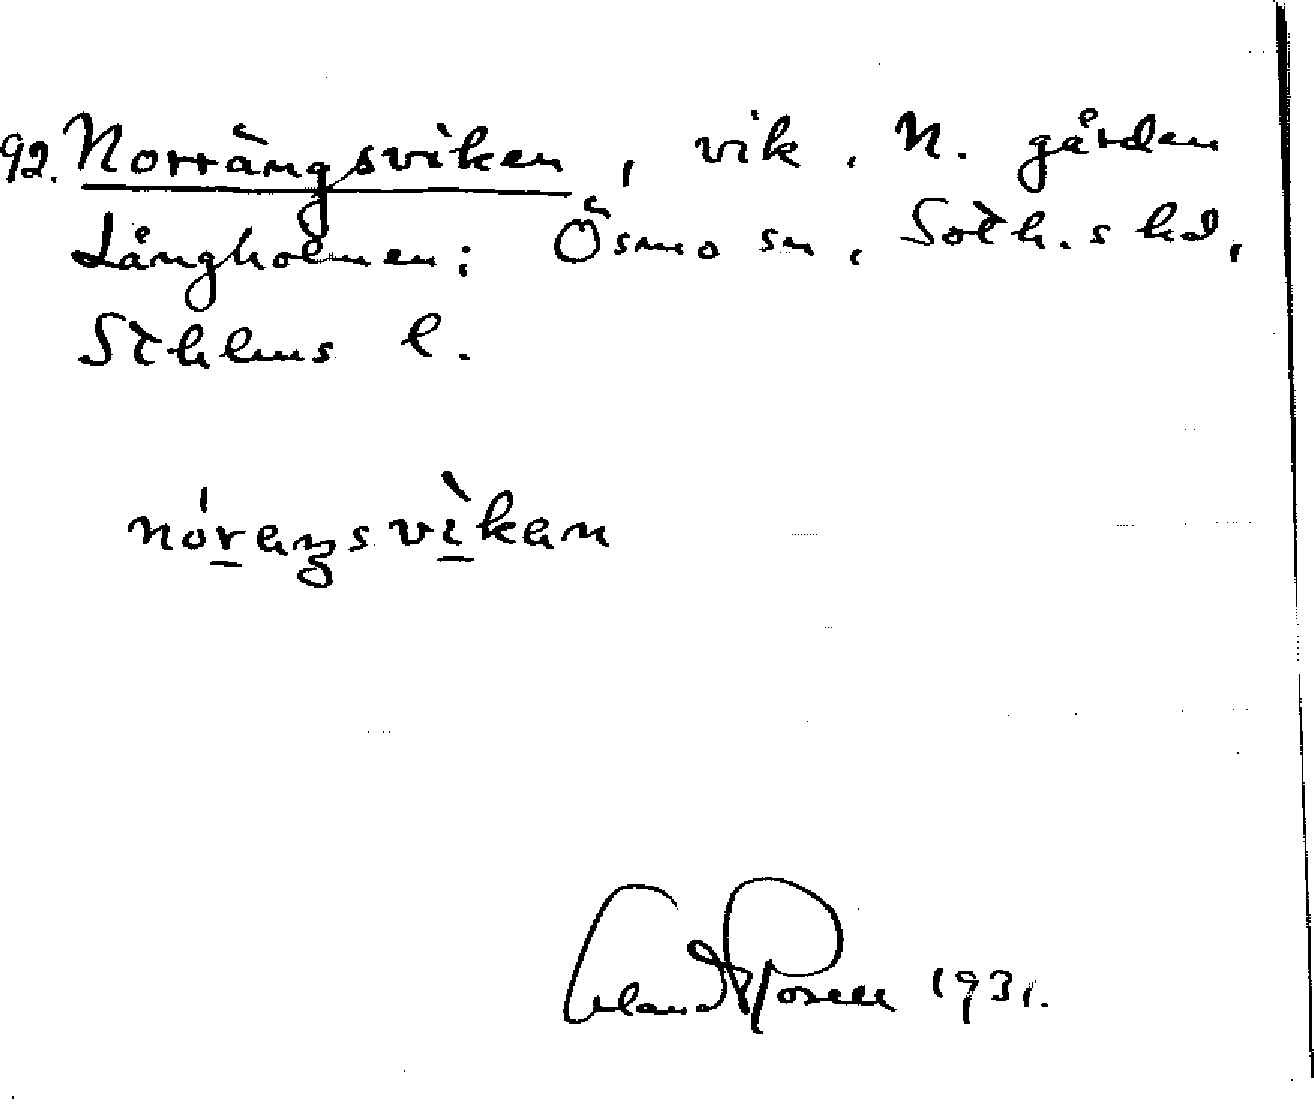 92. Norrängsviken, vik, N. gården
Långholmen; Ösmo sn, Soth.s hd,
Sthlms l.
nóraŋsvìkan
Erland Rosell 1931.